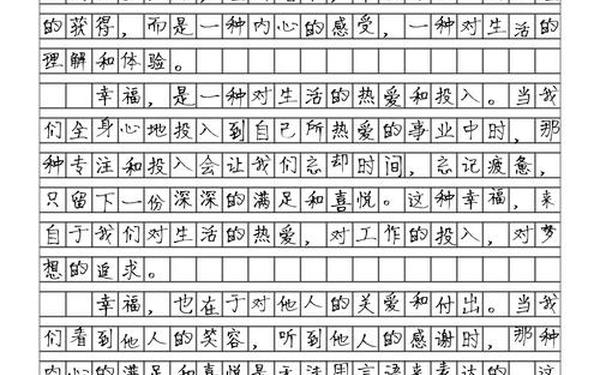 的获得，而是一种内心的感受，一种对生活的
理解和体验。
幸福，是一种对生活的热爱和投入。当我
们全身心地投入到自己所热爱的事业中时，那
种专注和投入会让我们忘却时间，忘记疲惫，
只留下一份深深的满足和喜悦。这种幸福，来
自于我们对生活的热爱，对工作的投入，对梦
想的追求。
幸福，也在于对他人的关爱和付出。当我
们看到他人的笑容，听到他人的感谢时，那种
内心的满足和喜悦是无法用言语来表达的。这